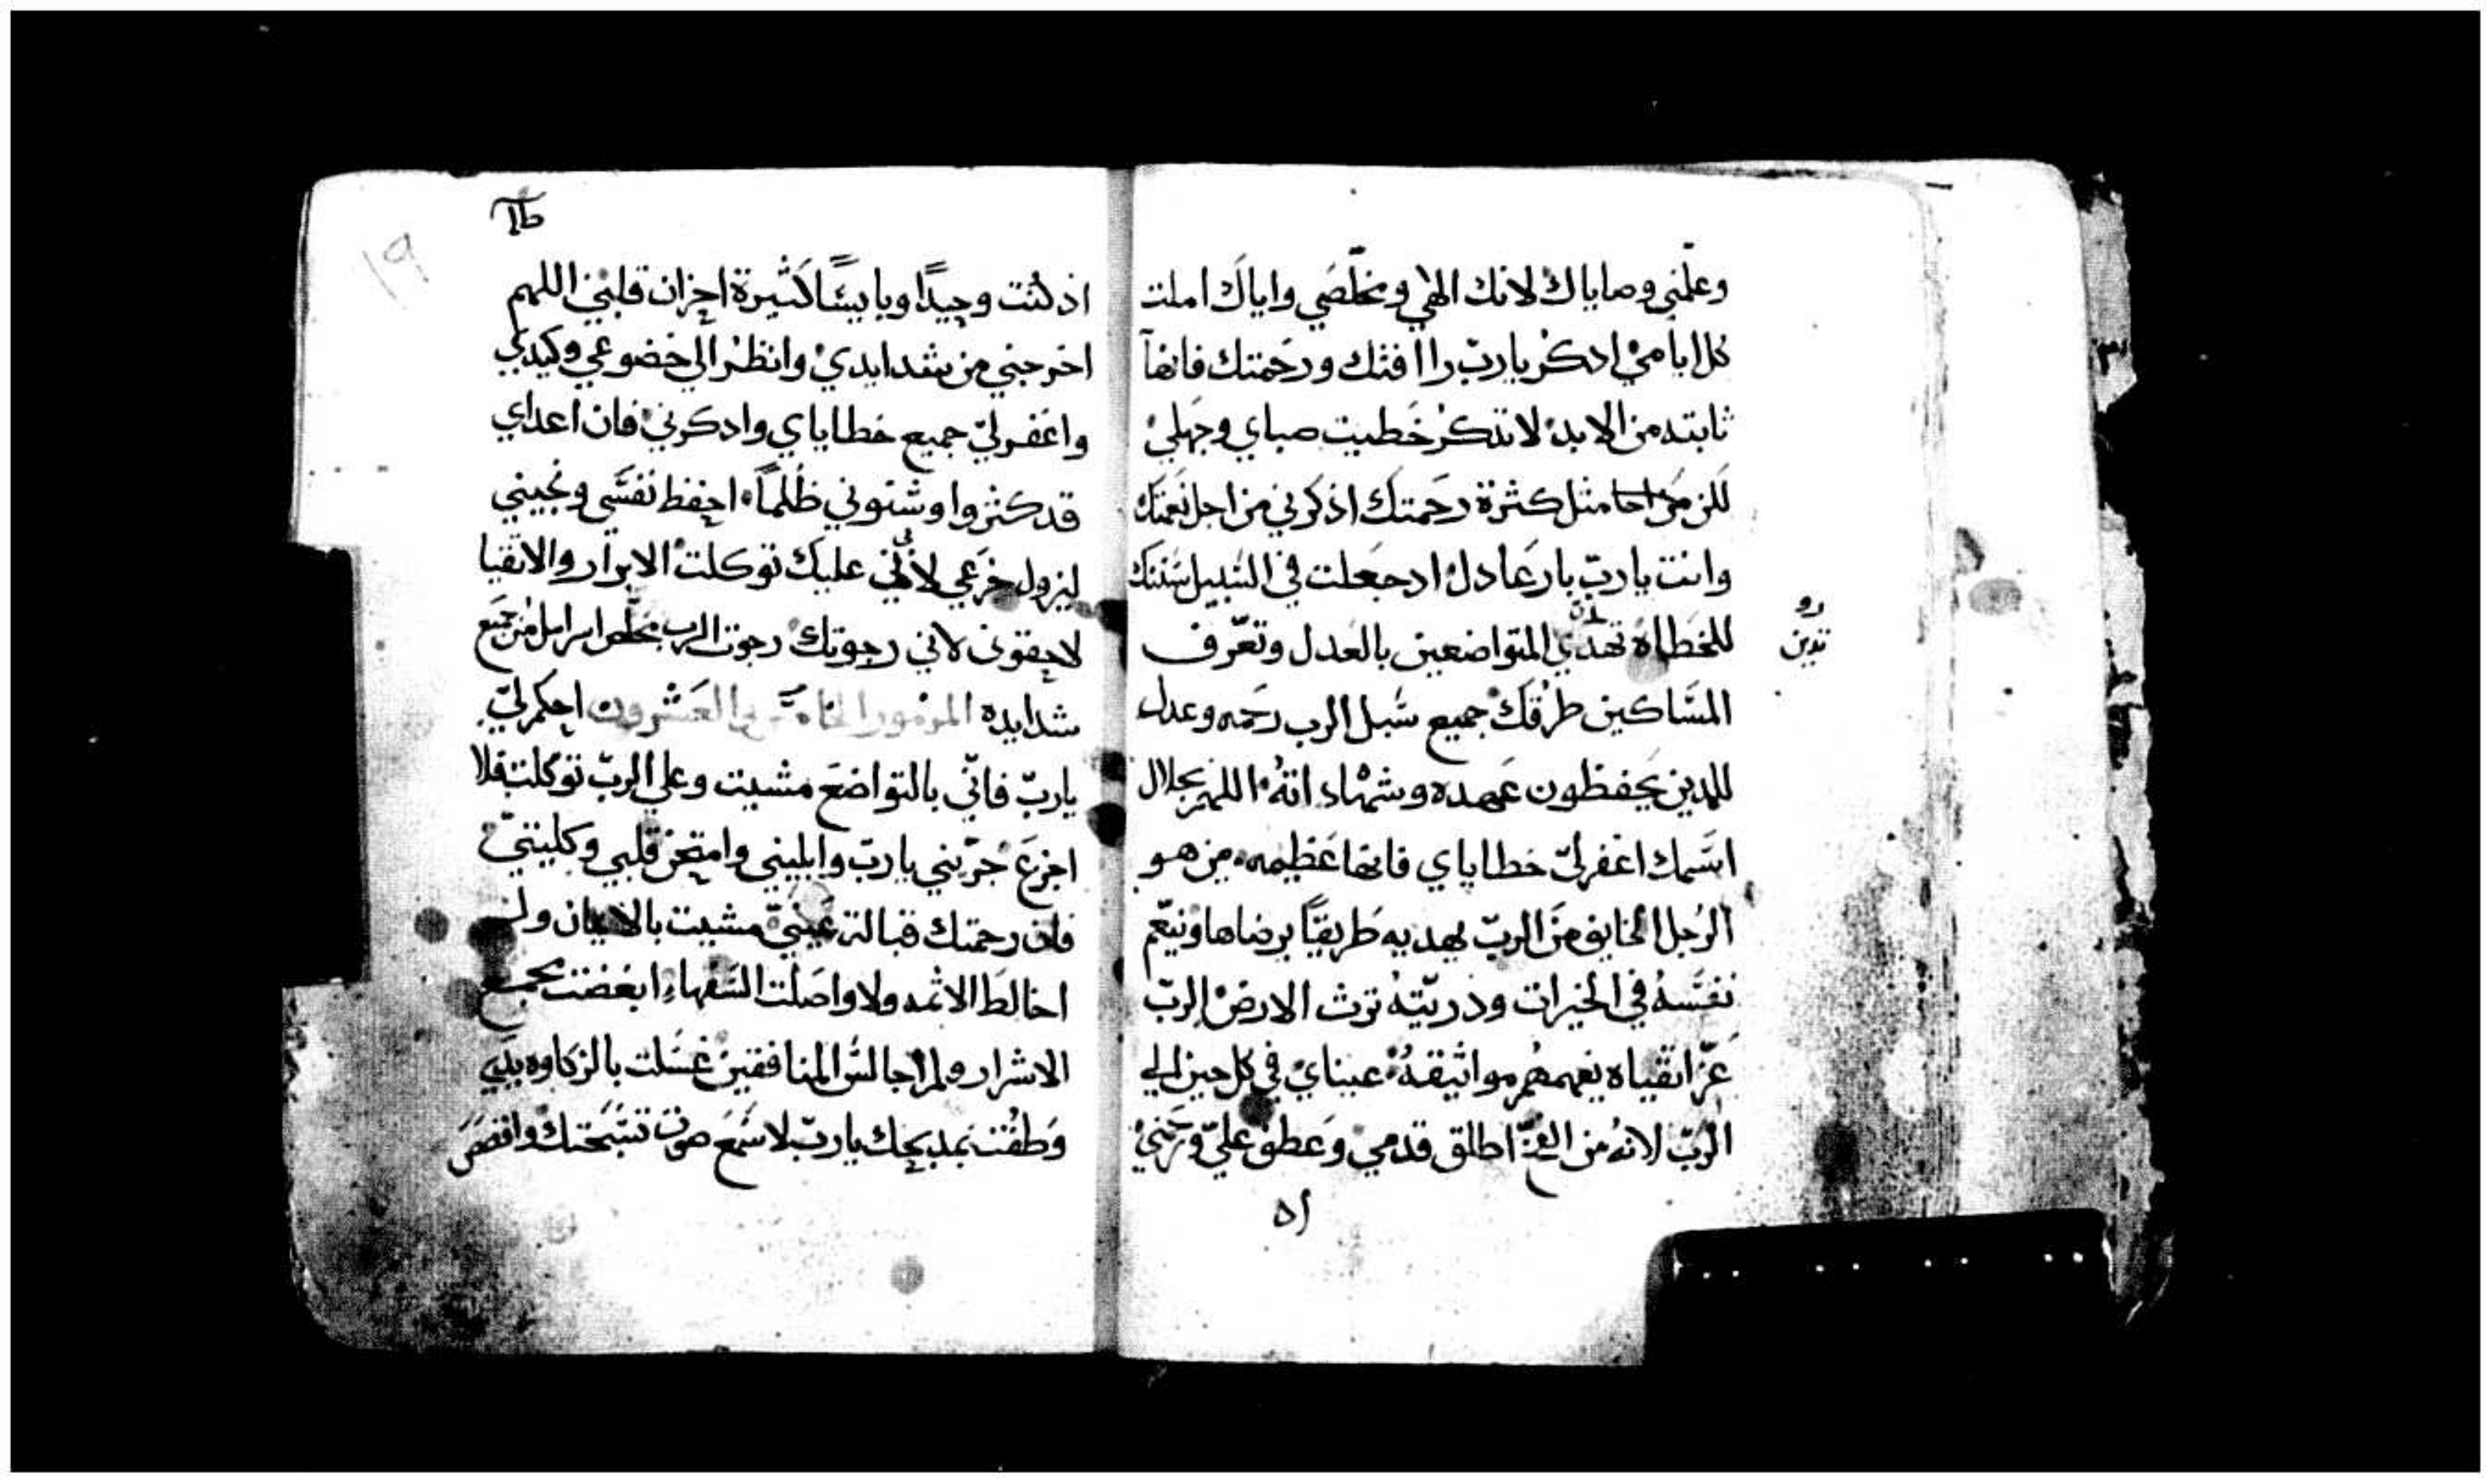 وعلّمني وصاياك لانك الهي ومخلّصي واياك املت
كل ايامي ادكر يارب راافتك ورحمتك فانها
ثابته من الابد لا تذكر خطيت صباي وجهلي
لكن مثل كثرة رحمتك اذكرني من اجل نعمتك
وانت يا ربّ بار عادل اد جعلت في السّبيل سننك
للخطاه تهدي المتواضعين بالعدل وتعرّف
المسّاكين طرقك جميع سّبل الرب رحمه وعدل
للدين يحفظون عهده وشهاداته اللهم بجلال
اسّمك اغفر ليّ خطاياي فانها عظيمه من هو
الرجل الخايف من الربّ يهديه طريقاً يرضاها وتنعّم
نفسّه في الخيرات ودريّته ترث الارض الربّ
عزّ اتقياه يفهمهم مواثيقه عيناي في كل حين الي
الربّ لانه من الفخّ اطلق قدمي وعطف عليّ ورحمني
رو
تدين
٥١
١٩
اذ كنت وحيدًا ويايسًّا كثيرة احزان قلبي اللهم
اخرجني من شدايدي وانظر الي خضوعي وكيدي
واغفر ليّ جميع خطاياي وادكرني فان اعداي
قد كثروا وشنوني ظلماً احفظ نفسّي ونجيني
ليزول جزعي لأنّي عليك توكلت الابرار والاتقيا
لاحقوني لاني رجوتك رجوت الرب مخلّص اسرايل من جميع
شدايده المزمور الخامسّ والعشرون احكم ليّ
ياربّ فانّي بالتواضع مشيت وعلي الربّ توكلت فلا
اجزع جرّبني ياربّ وابليني وامتحن قلبي وكليتيّ
فان رحمتك قبالة عينيّ مشيت بالايمان ولم
اخالط الاثمه ولا واصلت السّفهاء ابغضت مجمع
الاشرار ولم اجالسّ المنافقين غسّلت بالزكاوه يديّ
وطفت بمدبحك ياربّ لاسّمع صوت تسّبحتك واقصّ